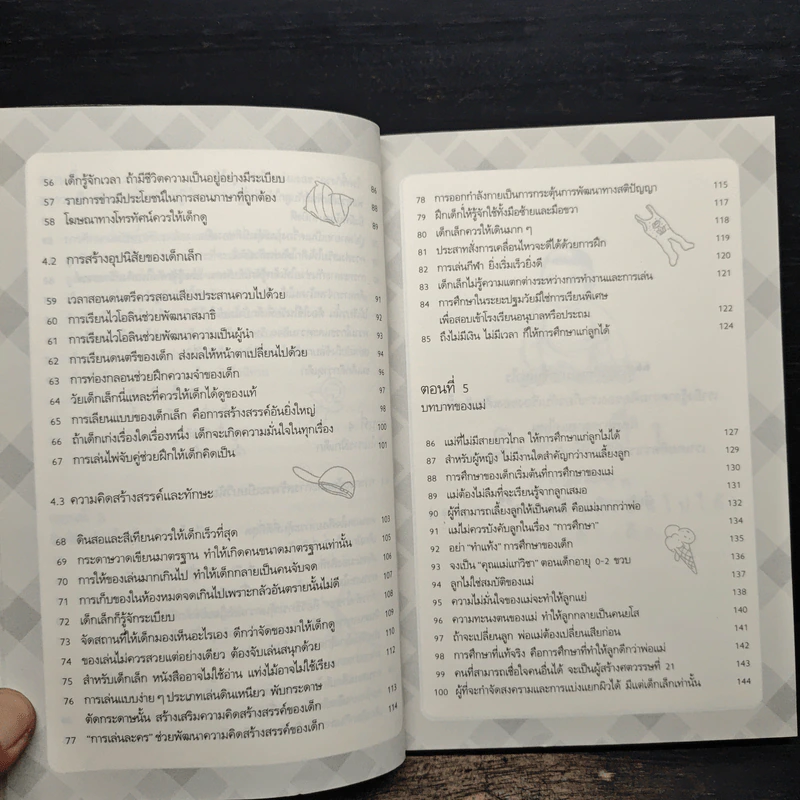 56 เด็กรู้จักเวลา ถ้ามีชีวิตความเป็นอยู่อย่างมีระเบียบ 86
57 รายการข่าวมีประโยชน์ในการสอนภาษาที่ถูกต้อง 88
58 โฆษณาทางโทรทัศน์ควรให้เด็กดู 89
4.2 การสร้างอุปนิสัยของเด็กเล็ก
59 เวลาสอนดนตรีควรสอนเสียงประสานควบไปด้วย 91
60 การเรียนไวโอลินช่วยพัฒนาสมาธิ 92
61 การเรียนไวโอลินช่วยพัฒนาความเป็นผู้นำ 93
62 การเรียนดนตรีของเด็ก ส่งผลให้หน้าตาเปลี่ยนไปด้วย 94
63 การท่องกลอนช่วยฝึกความจำของเด็ก 96
64 วัยเด็กเล็กนี่แหละที่ควรให้เด็กได้ดูของแท้ 97
65 การเลียนแบบของเด็กเล็ก คือการสร้างสรรค์อันยิ่งใหญ่ 98
66 ถ้าเด็กเก่งเรื่องใดเรื่องหนึ่ง เด็กจะเกิดความมั่นใจในทุกเรื่อง 100
67 การเล่นไพ่จับคู่ช่วยฝึกให้เด็กคิดเป็น 101
4.3 ความคิดสร้างสรรค์และทักษะ
68 ดินสอและสีเทียนควรให้เด็กเร็วที่สุด 103
69 กระดาษวาดเขียนมาตรฐาน ทำให้เกิดคนขนาดมาตรฐานเท่านั้น 105
70 การให้ของเล่นมากเกินไป ทำให้เด็กกลายเป็นคนจับจด 106
71 การเก็บของในห้องหมดจดเกินไปเพราะกลัวอันตรายนั้นไม่ดี 107
72 เด็กเล็กก็รู้จักระเบียบ 108
73 จัดสถานที่ให้เด็กมองเห็นอะไรเอง ดีกว่าจัดของมาให้เด็กดู 109
74 ของเล่นไม่ควรสวยแต่อย่างเดียว ต้องจับเล่นสนุกด้วย 110
75 สำหรับเด็กเล็ก หนังสืออาจไม่ใช้อ่าน แท่งไม้อาจไม่ใช้เรียง 112
76 การเล่นแบบง่าย ๆ ประเภทเล่นดินเหนียว พับกระดาษ
ตัดกระดาษนั้น สร้างเสริมความคิดสร้างสรรค์ของเด็ก 113
77 "การเล่นละคร" ช่วยพัฒนาความคิดสร้างสรรค์ของเด็ก 114
78 การออกกำลังกายเป็นการกระตุ้นการพัฒนาทางสติปัญญา 115
79 ฝึกเด็กให้รู้จักใช้ทั้งมือซ้ายและมือขวา 117
80 เด็กเล็กควรให้เดินมาก ๆ 118
81 ประสาทสั่งการเคลื่อนไหวจะดีได้ด้วยการฝึก 119
82 การเล่นกีฬา ยิ่งเริ่มเร็วยิ่งดี 120
83 เด็กเล็กไม่รู้ความแตกต่างระหว่างการทำงานและการเล่น 121
84 การศึกษาในระยะปฐมวัยมิใช่การเรียนพิเศษ
เพื่อสอบเข้าโรงเรียนอนุบาลหรือประถม 122
85 ถึงไม่มีเงิน ไม่มีเวลา ก็ให้การศึกษาแก่ลูกได้ 124
ตอนที่ 5
บทบาทของแม่
86 แม่ที่ไม่มีสายยาวไกล ให้การศึกษาแก่ลูกไม่ได้ 127
87 สำหรับผู้หญิง ไม่มีงานใดสำคัญกว่างานเลี้ยงลูก 129
88 การศึกษาของเด็กเริ่มต้นที่การศึกษาของแม่ 130
89 แม่ต้องไม่ลืมที่จะเรียนรู้จากลูกเสมอ 131
90 ผู้ที่สามารถเลี้ยงลูกให้เป็นคนดี คือแม่มากกว่าพ่อ 132
91 แม่ไม่ควรบังคับลูกในเรื่อง "การศึกษา" 134
92 อย่า "ทำแท้ง" การศึกษาของเด็ก 135
93 จงเป็น "คุณแม่แก่วิชา" ตอนเด็กอายุ 0-2 ขวบ 136
94 ลูกไม่ใช่สมบัติของแม่ 137
95 ความไม่มั่นใจของแม่จะทำให้ลูกแย่ 138
96 ความทะนงตนของแม่ ทำให้ลูกกลายเป็นคนยโส 140
97 ถ้าจะเปลี่ยนลูก พ่อแม่ต้องเปลี่ยนเสียก่อน 141
98 การศึกษาที่แท้จริง คือการศึกษาที่ทำให้ลูกดีกว่าพ่อแม่ 142
99 คนที่สามารถเชื่อใจคนอื่นได้ จะเป็นผู้สร้างศตวรรษที่ 21 143
100 ผู้ที่จะกำจัดสงครามและการแบ่งแยกผิวได้ มีแต่เด็กเล็กเท่านั้น 144